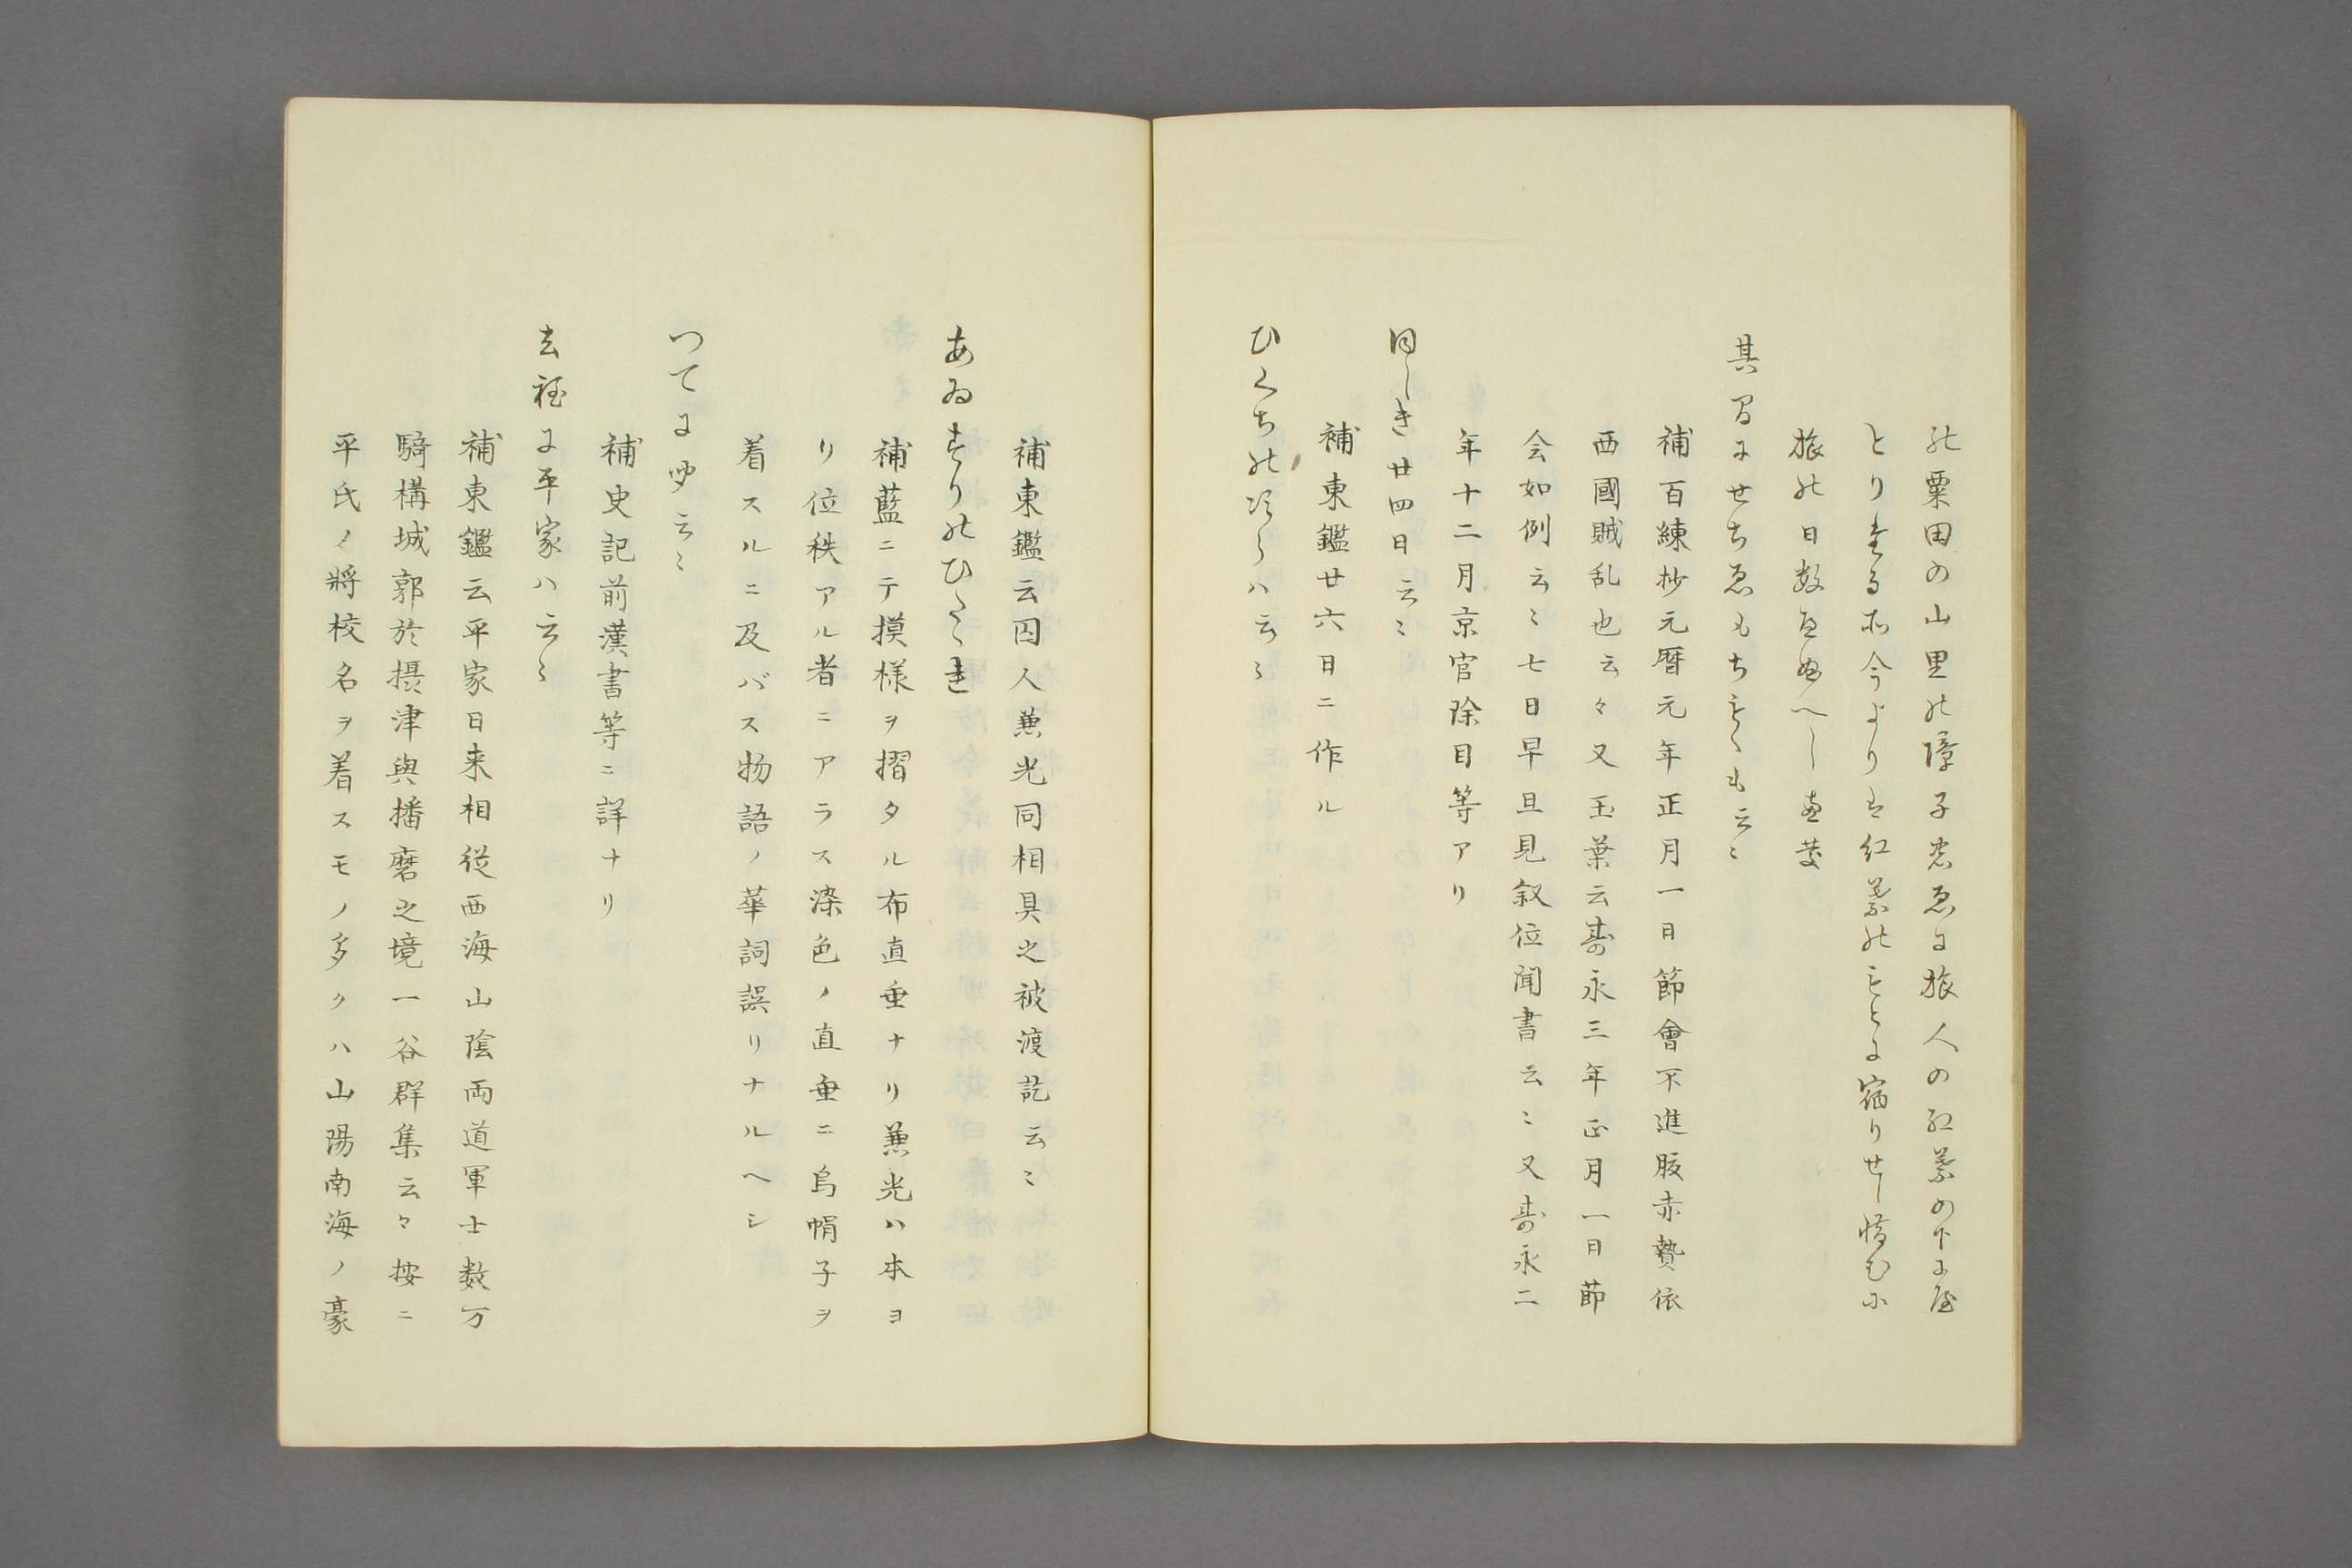 の粟田の山里の障子ゑに旅人の紅葉の下に屋
とりたる所今よりは紅葉のもとに宿りせし惜むに
旅の日数へぬへし
其間にせちゑもちもくも云〻
補百練抄元暦元年正月一日節會不進腹赤贄依
西國賊乱也云々又玉葉云寿永三年正月一日節
会如例云〻七日早旦見叙位聞書云〻又寿永二
年十二月京官除目等アリ
同しき廿四日云〻
補東鑑廿六日ニ作ル
ひくちの次らハ云〻
補東鑑云囚人兼光同相具之被渡訖云〻
あゐすりのひたゝれ
補藍ニテ摸様ヲ摺タル布直垂ナリ兼光ハ本ヨ
リ位秩アル者ニアラス染色ノ直垂ニ烏帽子ヲ
着スルニ及バス物語ノ華詞誤リナルヘシ
つてに聞云〻
補史記前漢書等ニ詳ナリ
去程に平家ハ云〻
補東鑑云平家日来相從西海山陰両道軍士数万
騎構城郭於摂津與播磨之境一谷群集云々按ニ
平氏ノ將校名ヲ着スモノ多クハ山陽南海ノ豪